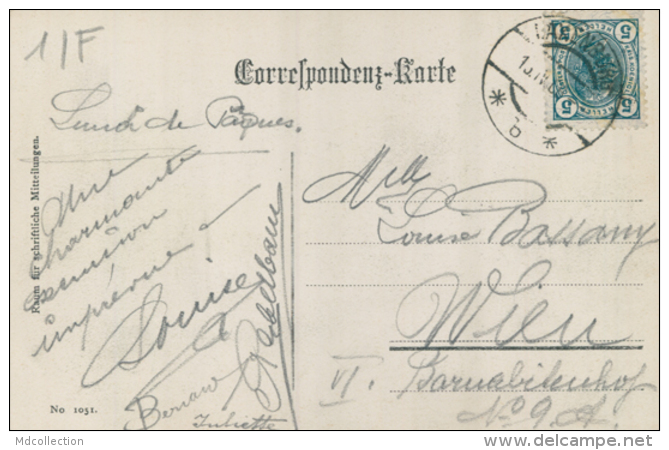 1/F
Correspondenz-Karte
Lundi de Pâques.
Une
charmante
réunion
imprévue
Louise
Juliette
Raum für schriftliche Mitteilungen.
No 1051.
Mlle
Louise Bassany
Wien
VI. Barnabitenhof
No 9 A.
5 5
5 5
HELLER
* b *
Mdcollection
www.delcampe.net